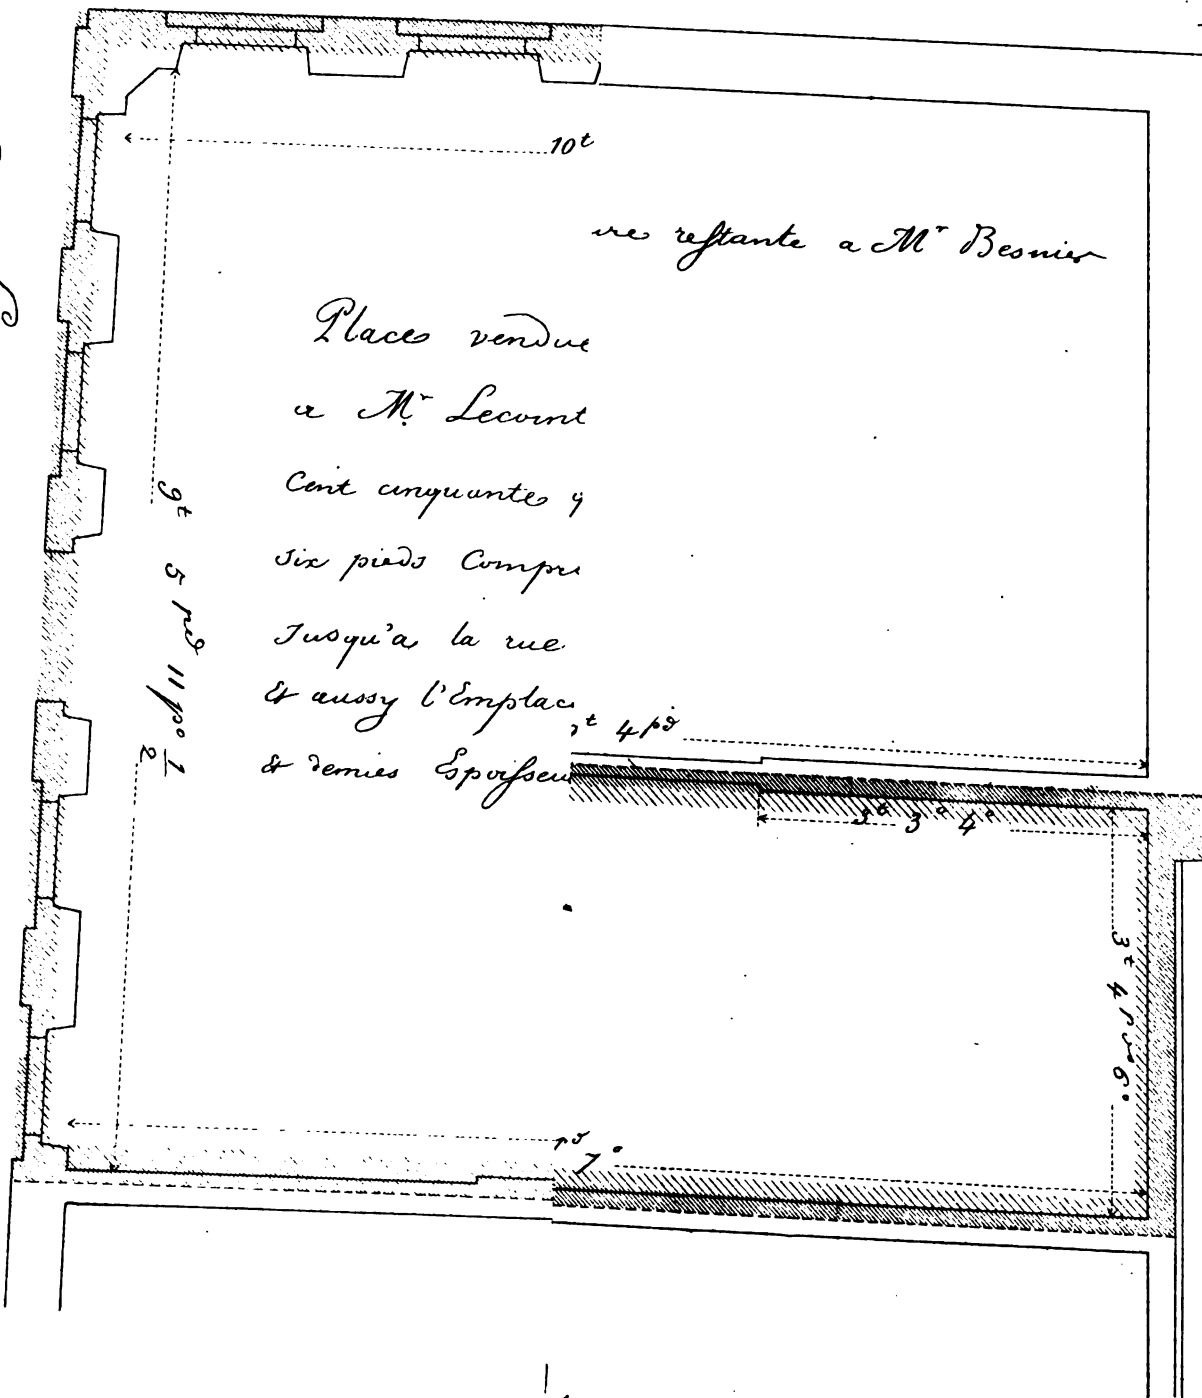 10t
restante a Mr Besnier
Place vendue
a Mr Lecoint
Cent cinquante q
six pieds Compri
Jusqu'a la rue
& aussy l'Emplac
t 4 pd
& demies Espoisseu
9t 5 pd 11 po 1/2
3t 3 4
3t 4 pds 6
pd 7